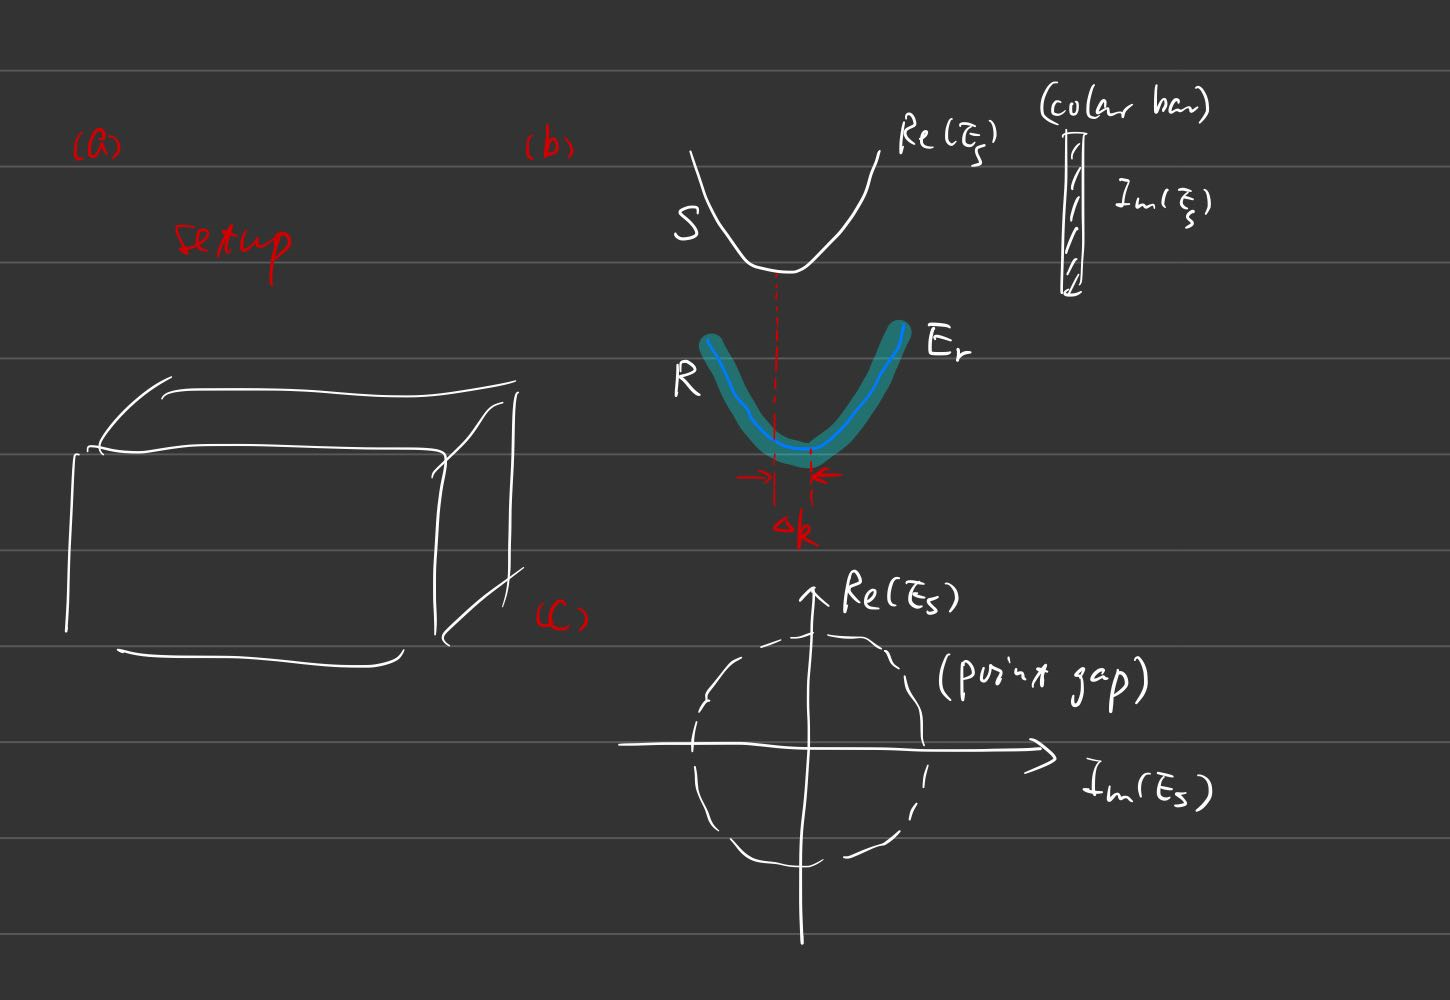 (a)
setup
(b)
Re(Es)
S
(colar bar)
Im(Es)
R
Er
Δk
(c)
Re(Es)
(point gap)
Im(Es)